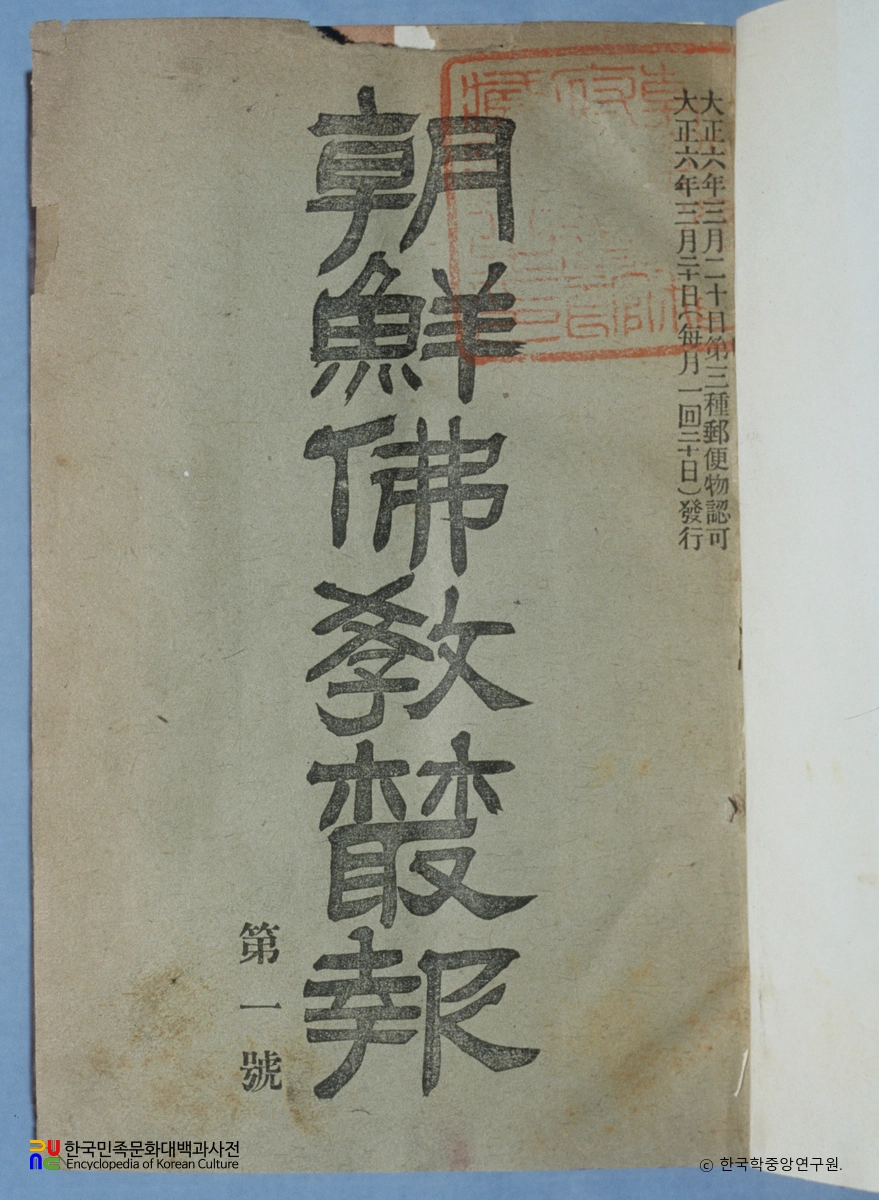 大正六年三月二十日第三種郵便物認可
大正六年三月二十日(每月一回二十日)發行
朝鮮佛教叢報
第一號
한국민족문화대백과사전
Encyclopedia of Korean Culture
© 한국학중앙연구원.